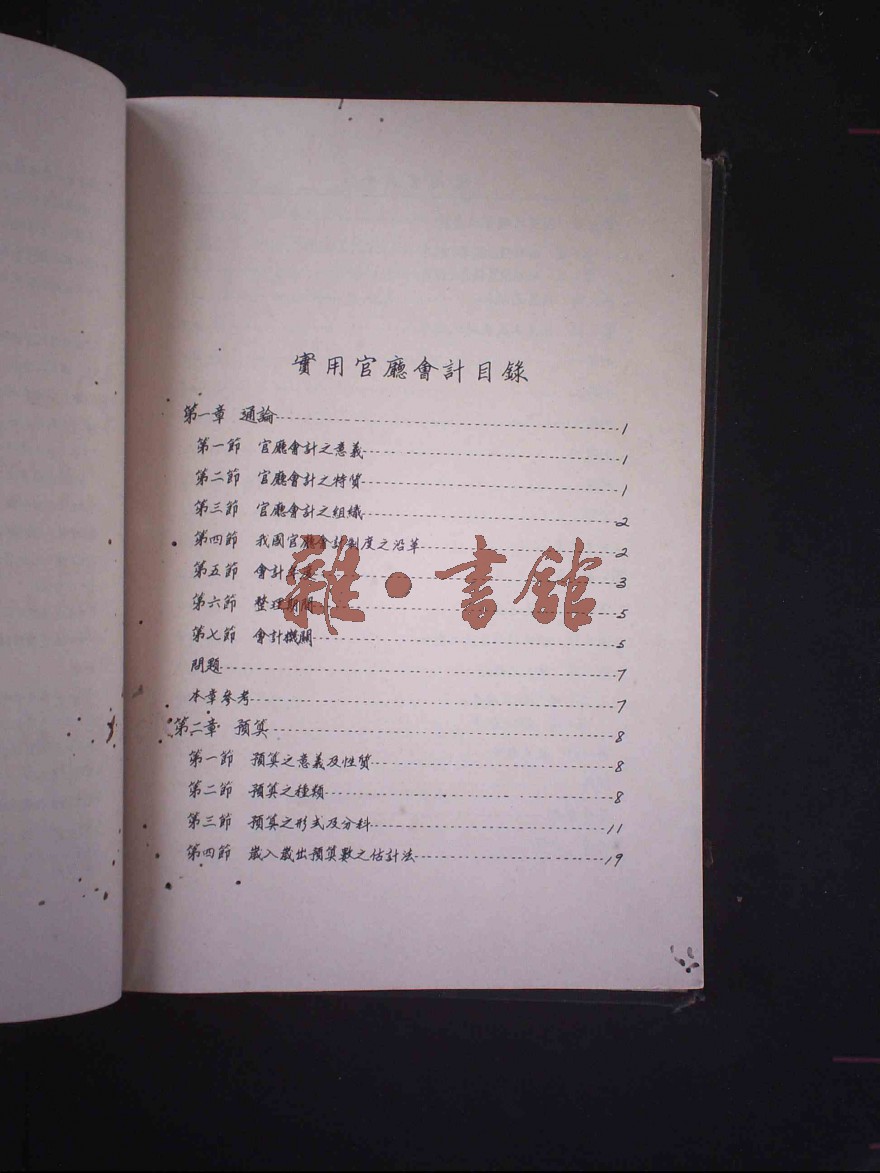 實用官廳會計目錄
第一章 通論 1
第一節 官廳會計之意義 1
第二節 官廳會計之特質 1
第三節 官廳會計之組織 2
第四節 我國官廳會計制度之沿革 2
第五節 會計年度 3
第六節 整理期間 5
第七節 會計機關 5
問題 7
本章參考 7
第二章 預算 8
第一節 預算之意義及性質 8
第二節 預算之種類 8
第三節 預算之形式及分科 11
第四節 歲入歲出預算數之估計法 19
雜·書館